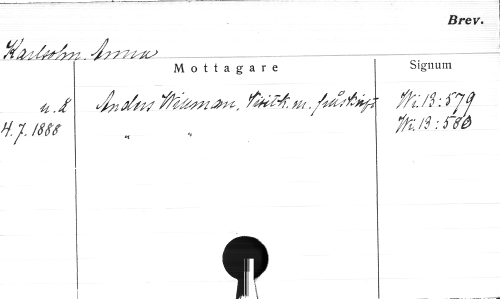 Brev.
Karlsohn Anna
Mottagare Signum
u.å. Anders Wiuman, Visitk. m. påskrift Wi.13:579
4.7.1888 " " Wi.13:580